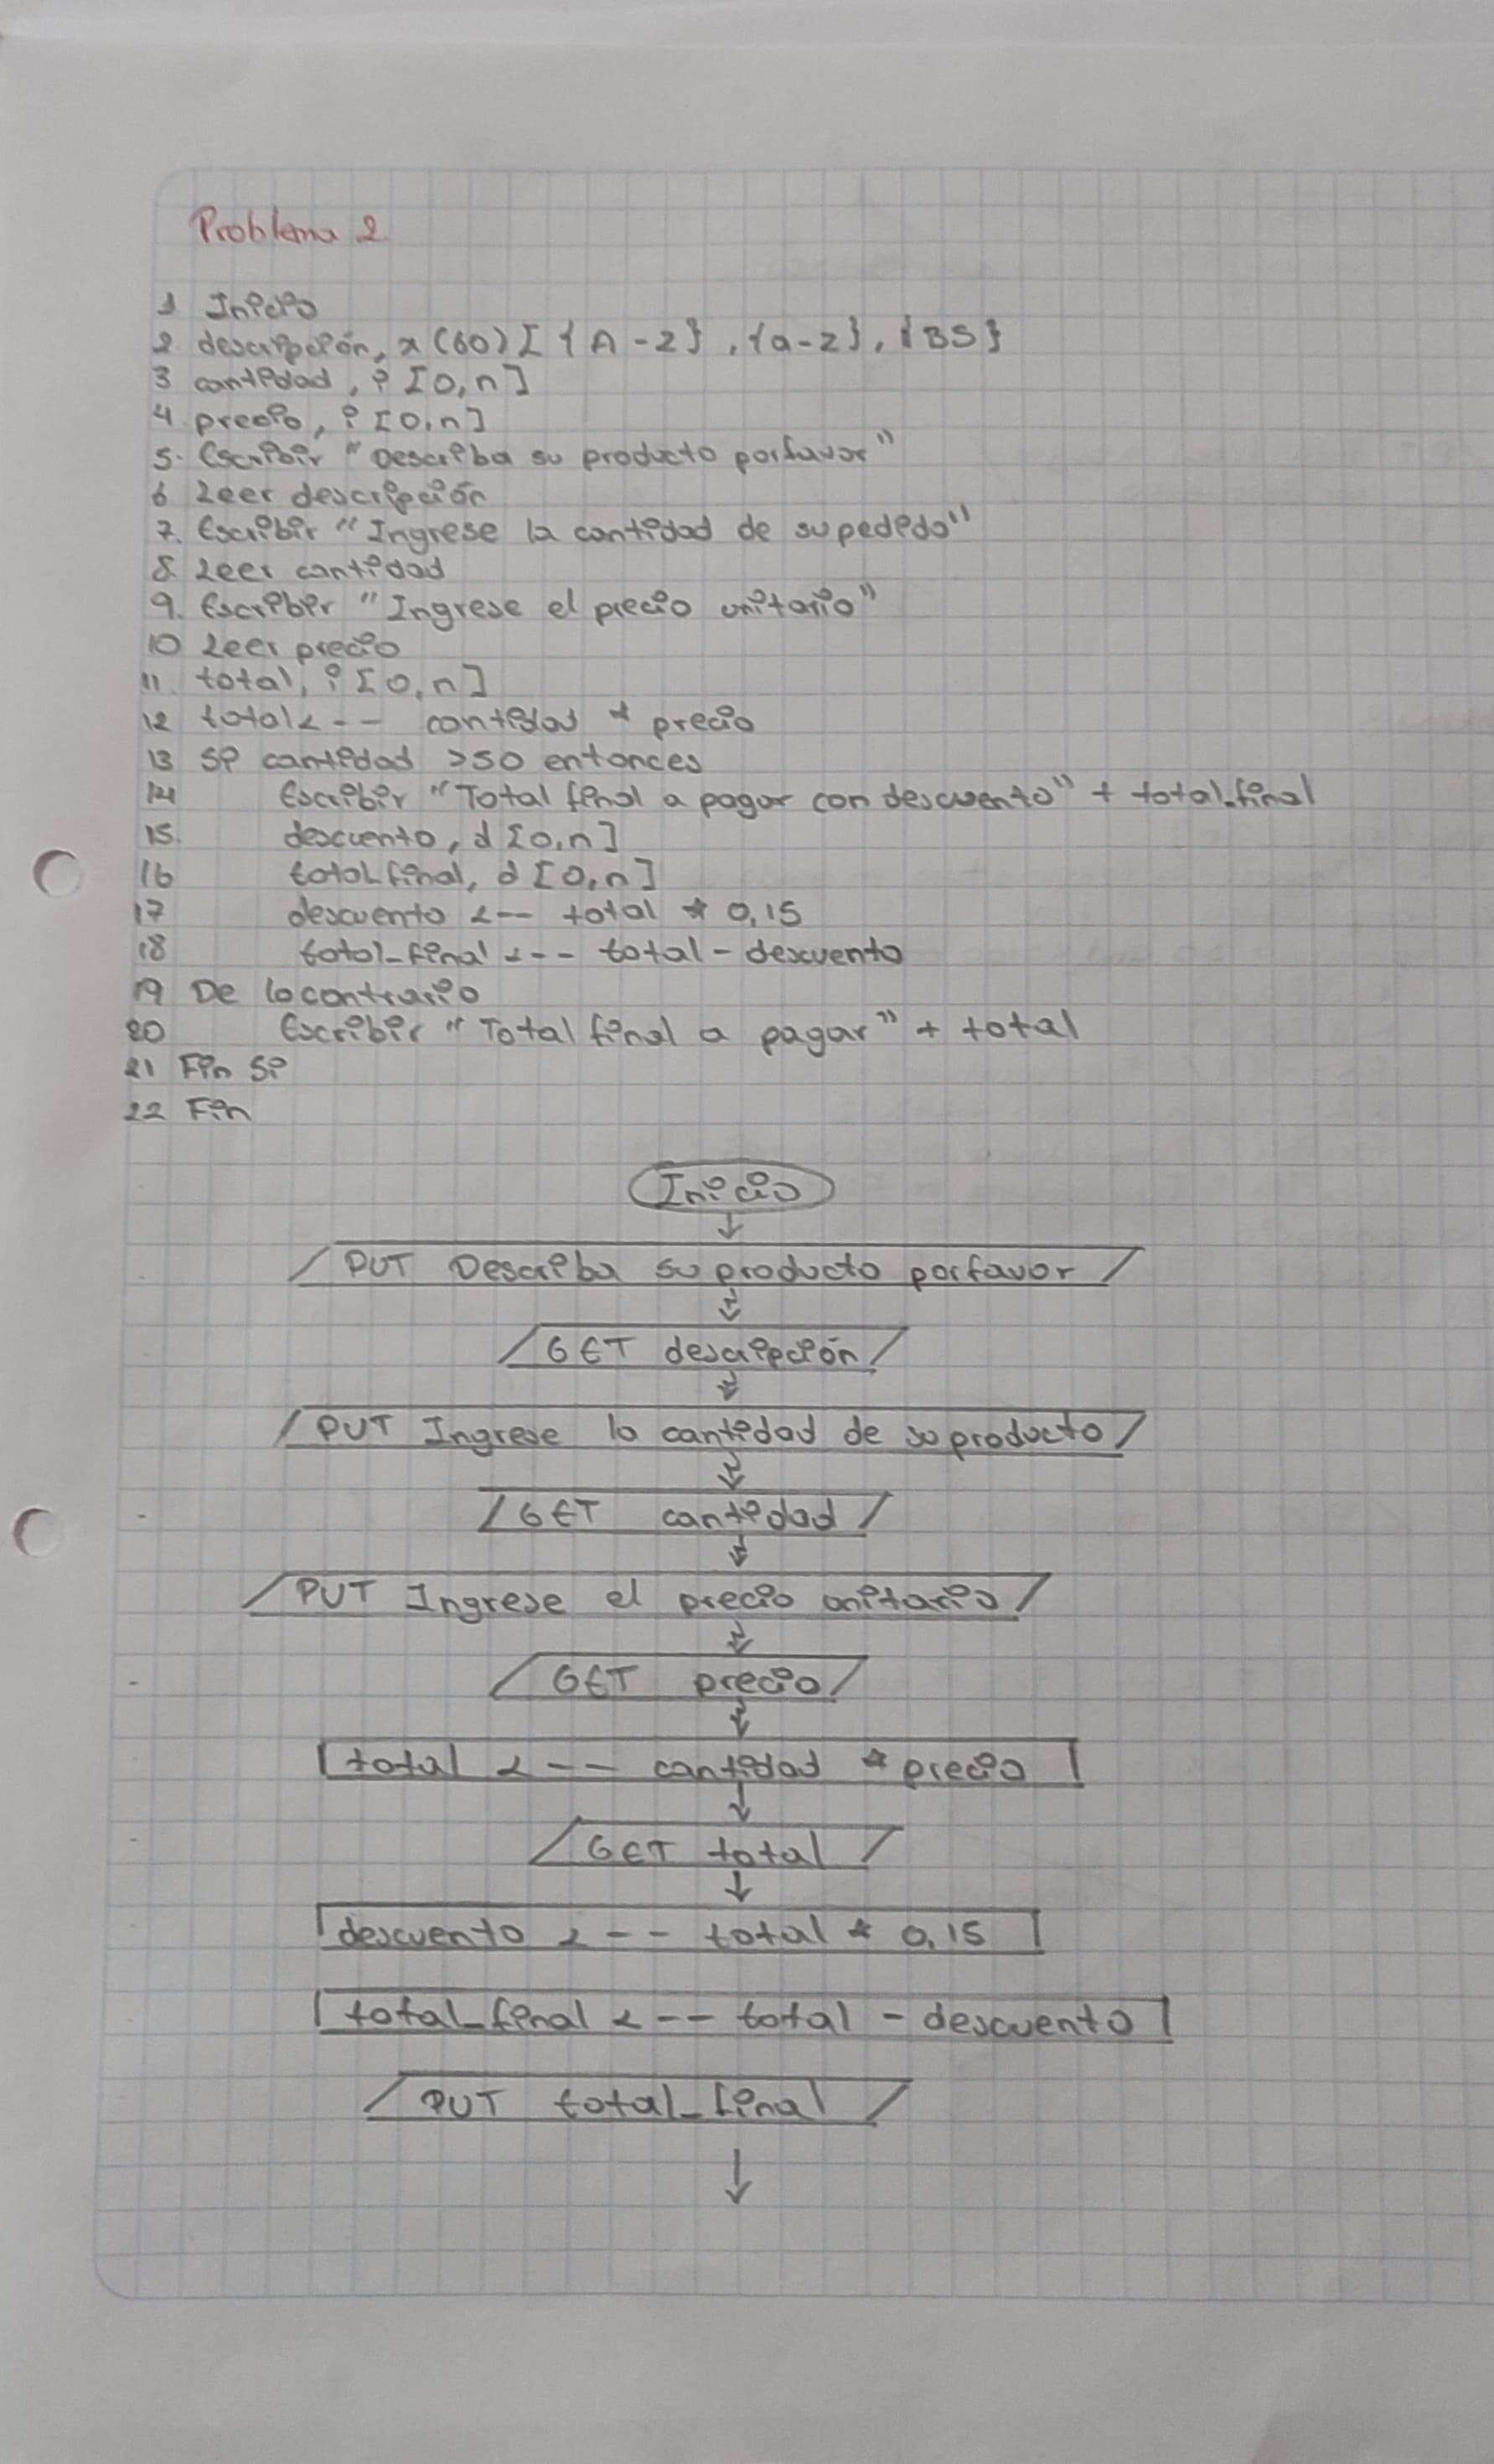 Problema 2
1 Inicio
2 descripción, x(60) [ {A-Z}, {a-z}, {BS}
3 cantidad, i [0,n]
4. precio, i [0,n]
5. Escribir "Describa su producto porfavor"
6 Leer descripción
7. Escribir "Ingrese la cantidad de su pedido"
8. Leer cantidad
9. Escribir "Ingrese el precio unitario"
10 Leer precio
11. total, i [0,n]
12 total <-- cantidad * precio
13 Si cantidad >50 entonces
14 Escribir "Total final a pagar con descuento" + total_final
15. descuento, d [0,n]
16 total_final, d [0,n]
17 descuento <-- total * 0,15
18 total_final <-- total - descuento
19 De lo contrario
20 Escribir "Total final a pagar" + total
21 Fin Si
22 Fin
Inicio
PUT Describa su producto porfavor
GET descripción
PUT Ingrese la cantidad de su producto
GET cantidad
PUT Ingrese el precio unitario
GET precio
total <-- cantidad * precio
GET total
descuento <-- total * 0,15
total_final <-- total - descuento
PUT total_final